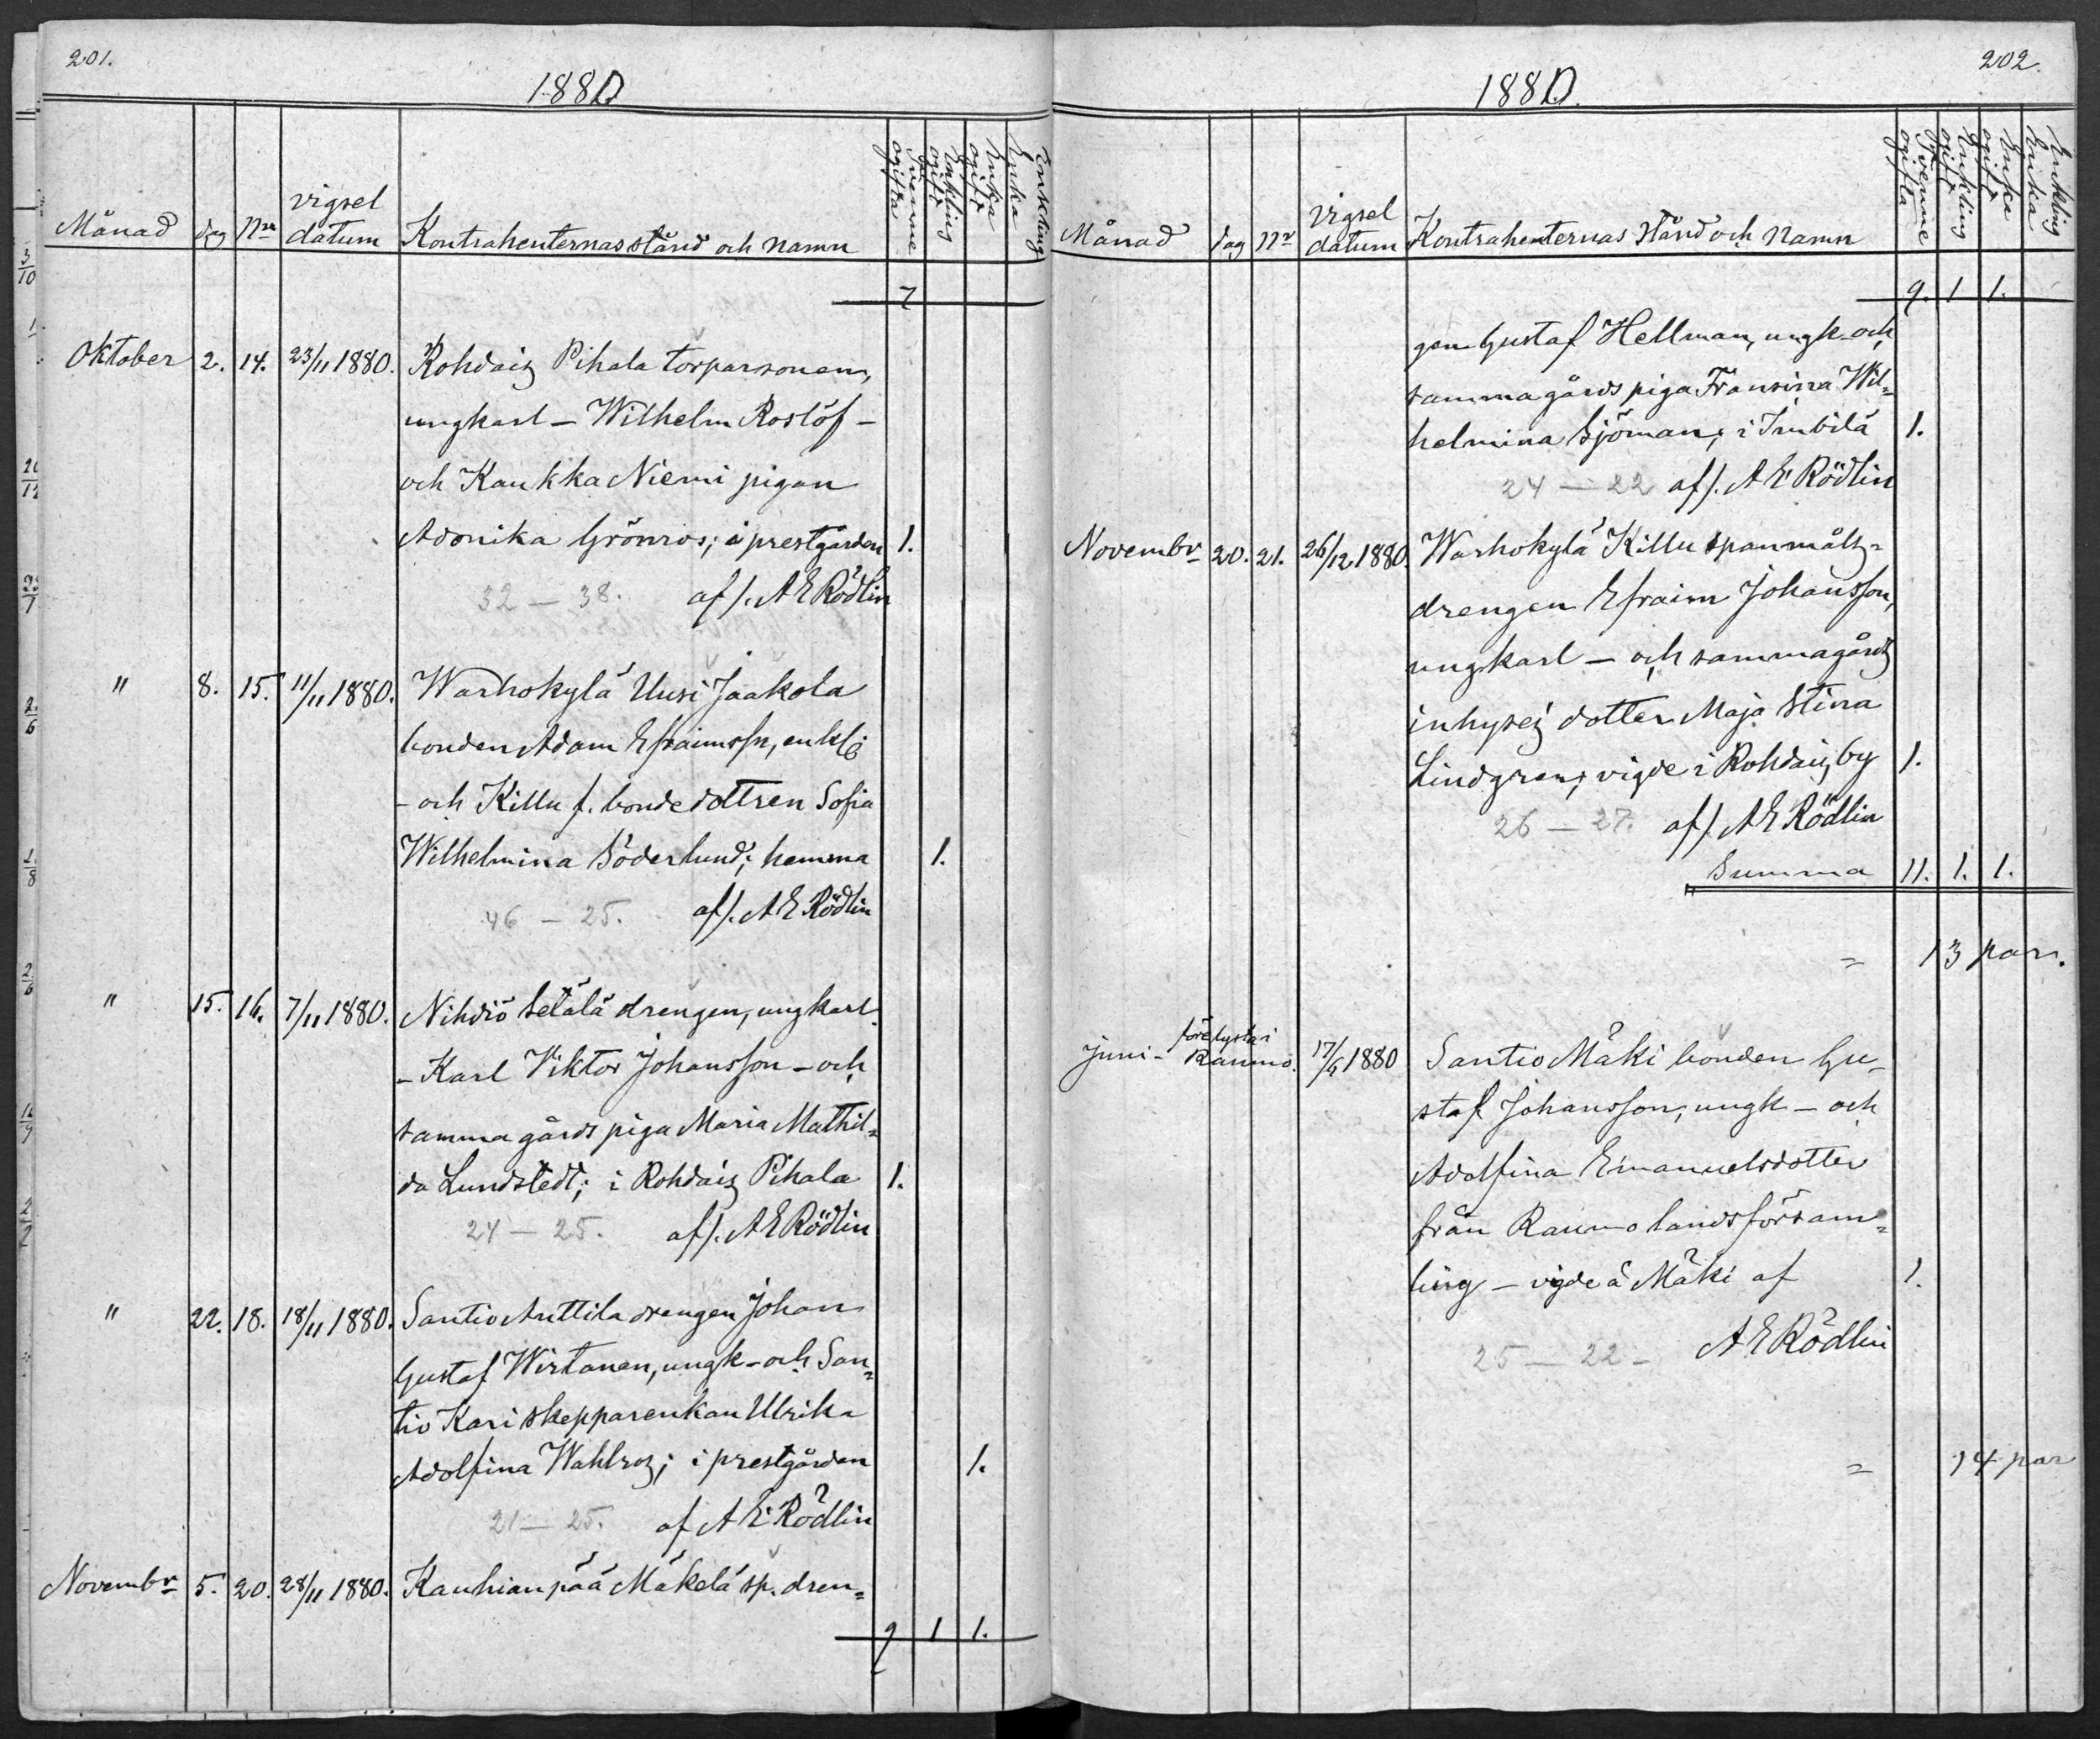 201.
1880
Månad dag Nrr vigsel datum Kontrahenternas stånd och namn ogifta Svenne ogift Enkling ogift Enka Enka Enkling
7
Oktober 2. 14. 23/11 1880. Rohdais Pihala torparsonen,
ungkarl – Wilhelm Roslöf –
och Kaukka Niemi pigan
Adonika Grönros; i prestgården 1.
32 – 38. af/. A E Rödlin
" 8. 15. 11/11 1880. Warhokylä Uusi Jaakola
bonden Adam Efraimssn, enklg
– och Killu f. bondedottren Sofia
Wilhelmina Söderlund; hemma 1.
46 – 25. af/. A E Rödlin
" 15. 16. 7/11 1880. Nihdiö Setälä drengen, ungkarl
– Karl Viktor Johansson – och
samma gårds piga Maria Mathil=
da Lundstedt; i Rohdais Pihala 1.
24 – 25. af/. A E Rödlin
" 22. 18. 18/11 1880. Santio Anttila drengen Johan
Gustaf Wirtanen, ungk – och San=
tio Kari skepparenkan Ulrika
Adolfina Wahlros; i prestgården 1.
21 – 25. af A E Rödlin
Novembr 5. 20. 28/11 1880. Kauhianpää Mäkelä sp. dren=
9 1 1.
202.
1880.
Månad dag Nr vigsel datum Kontrahenternas stånd och namn ogifta Svenne ogift Enkling ogift Enka Enka Enkling
9. 1 1.
gen Gustaf Hellman, ungk – och
samma gårds piga Fransina Wil=
helmina Sjöman; i Imbilä 1.
24 – 22 af/. A E Rödlin
Novembr 20. 21. 26/12 1880. Warhokylä Killu spanmåls=
drengen Efraim Johansson,
ungkarl – och sammagårds
inhyses dotter Maja Stina
Lindgren; vigde i Rohdais by 1.
26 – 27. af/. A E Rödlin
Summa 11. 1. 1.
= 13 par.
juni – förelysta i Raumo. 17/6 1880 Santio Mäki bonden Gu=
staf Johansson, ungk – och
Adolfina Emanuelsdotter
från Raumo landsförsam=
ling – vigde å Mäki af 1.
25 – 22 – A E Rödlin
= 14 par